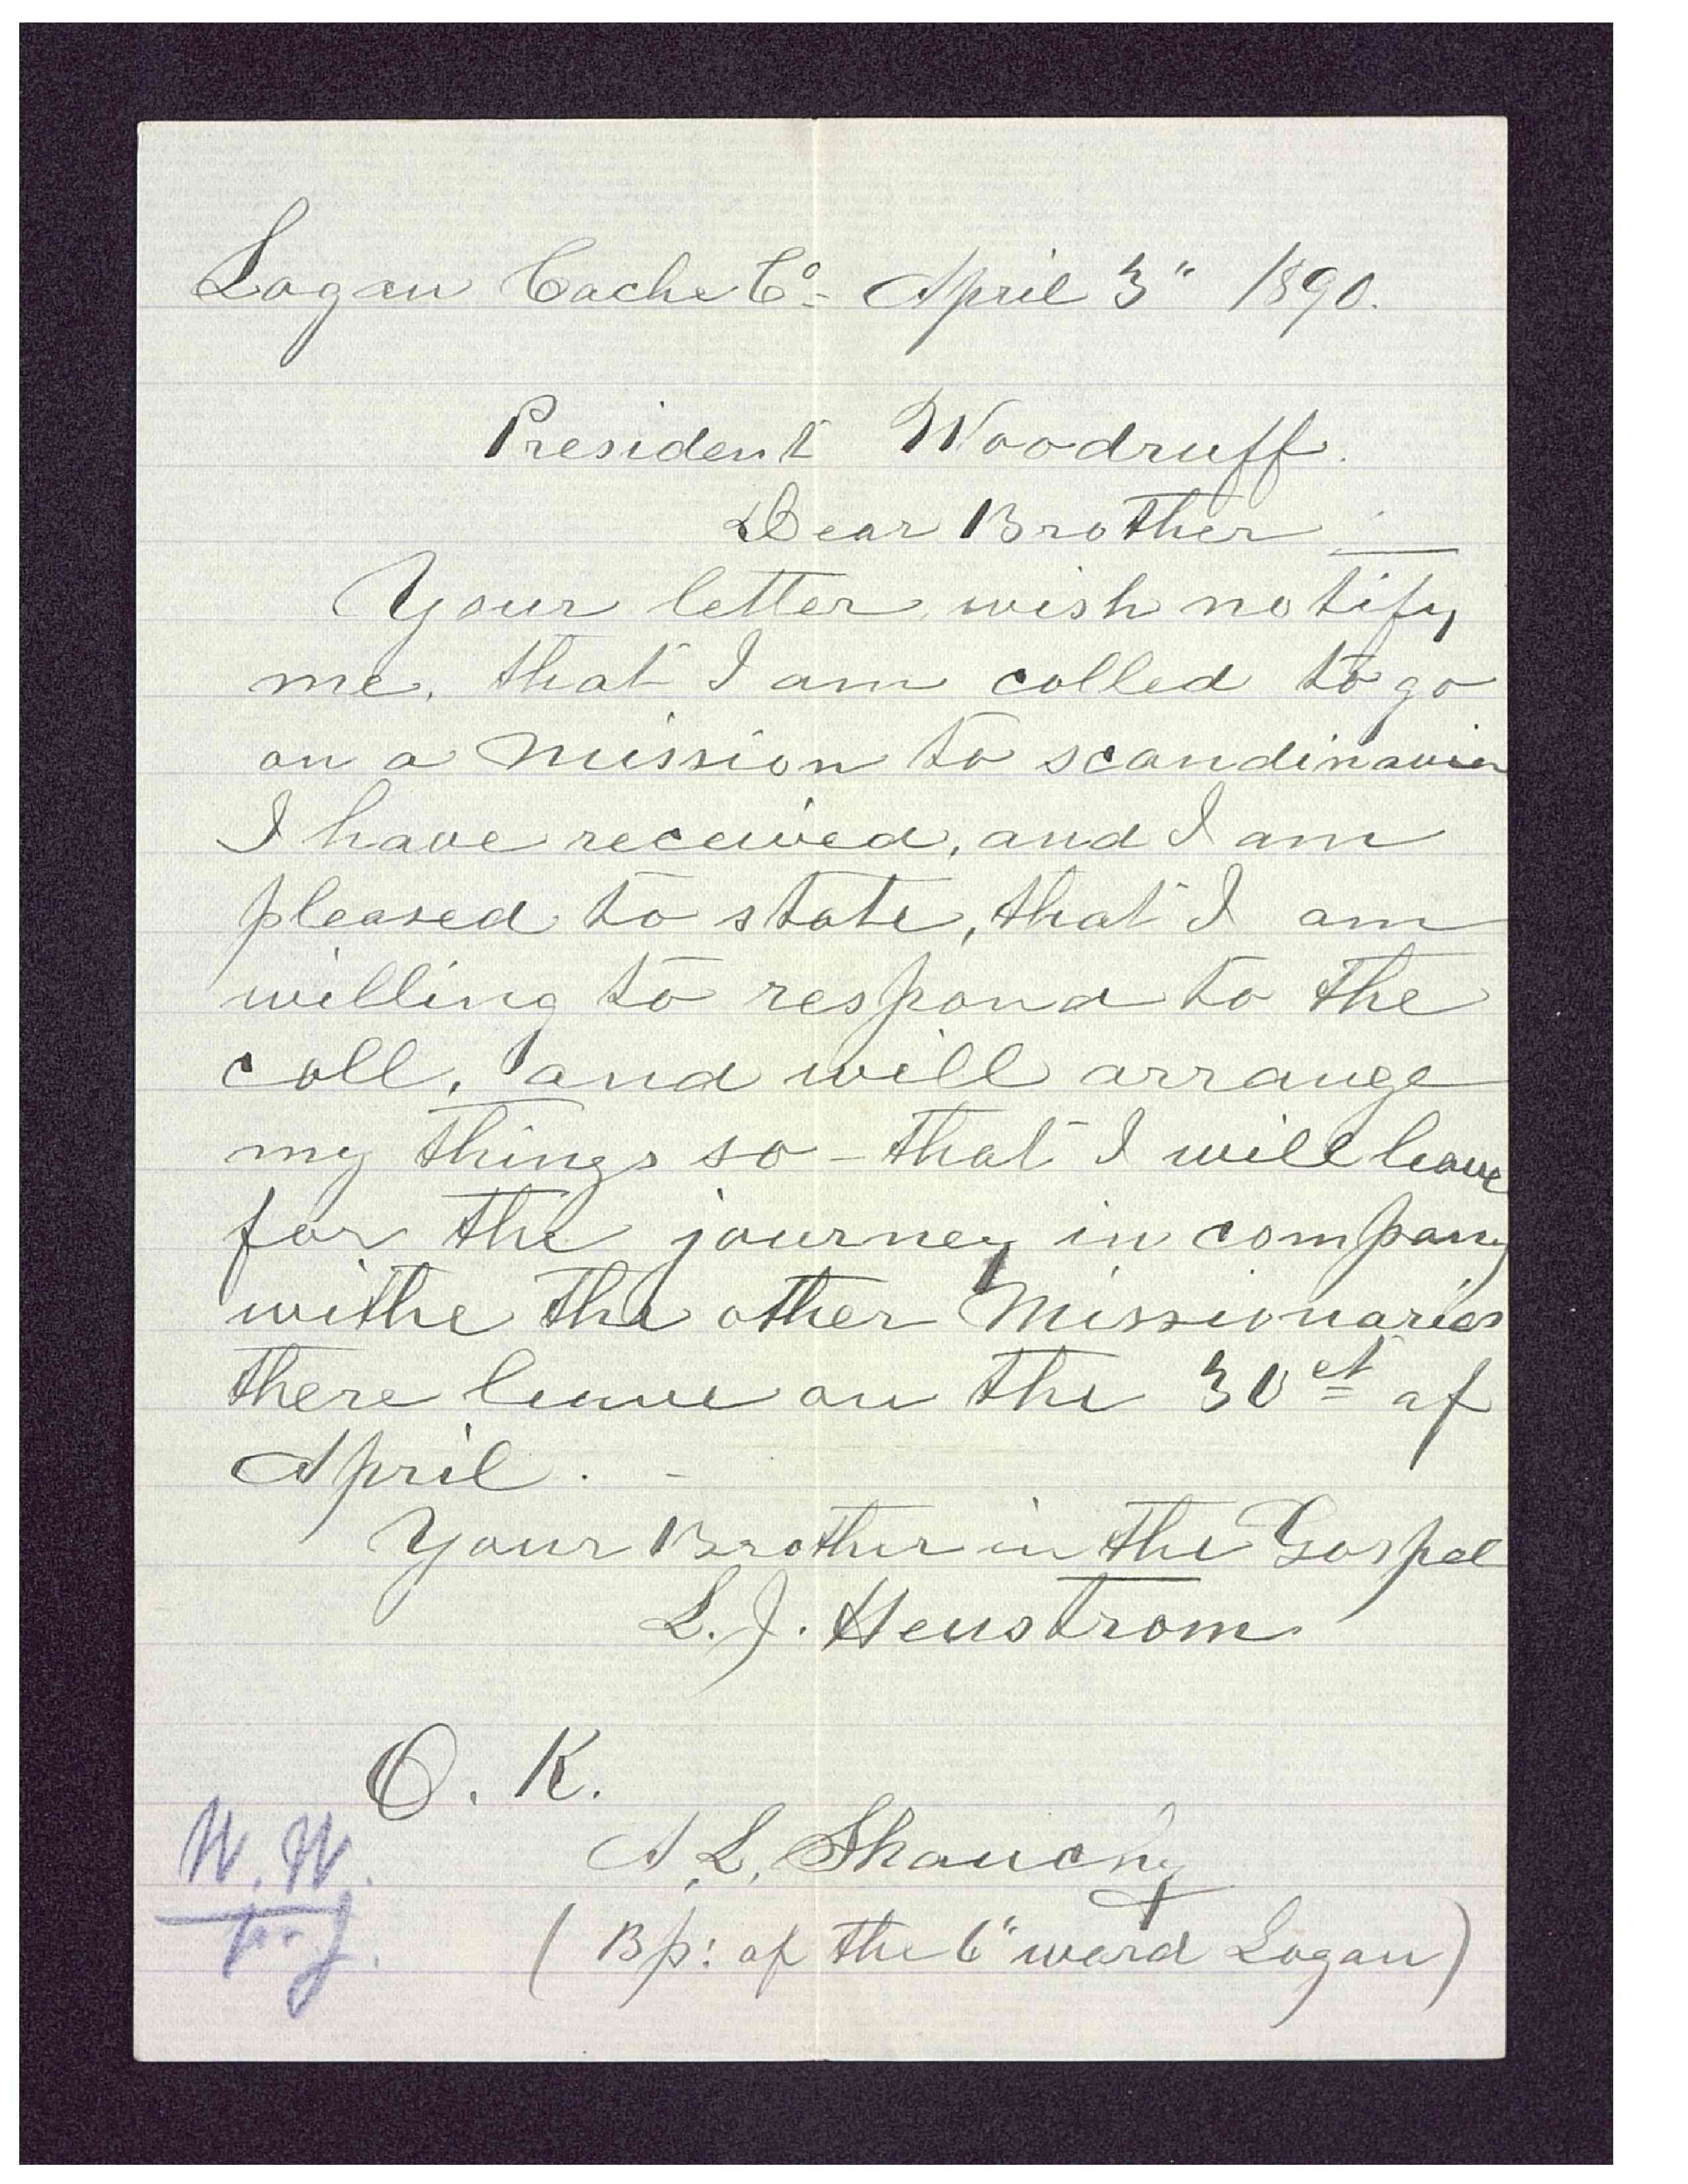 Logan Cache Co- April 3" 1890.
President Woodruff.
Dear Brother
Your letter wish notify
me, that I am colled to go
on a Mission to scandinavien
I have received, and I am
pleased to state, that I am
willing to respond to the
coll, and will arrange
my things so - that I will leave
for the journey in company
withe the other Missionaries
there leave on the 30et of
April. -
Your Brother in the Gospel
L. J. Henstrom
O. K.
A. L. Skanchy
(Bp: of the 6" ward Logan)
W. W.
p. J.